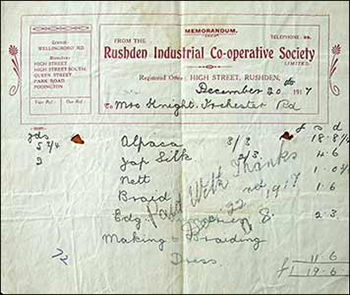 MEMORANDUM.
FROM THE
TELEPHONE
Rushden Industrial Co-operative Society
LIMITED.
WELLINGBORO' RD
Branches:
HIGH STREET
HIGH STREET SOUTH
QUEEN STREET
PARK ROAD
PODINGTON
Your Ref. Our Ref.
Registered Office: HIGH STREET, RUSHDEN,
December 20th 1917
Mrs Knight, Irchester Rd
yds £ s d
5 3/4 Alpaca 3/3 18.8
3 Jap Silk 4.6
Nett 1.0
Braid 1.6
Edg 8. 2.3
Making & Braiding
Dress. 11.6
£ 1 19.6
Paid With Thanks
Dec 22nd 1917